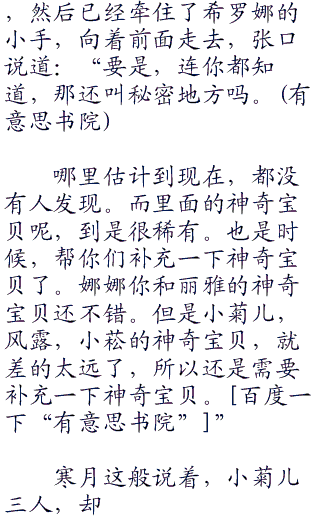 ，然后已经牵住了希罗娜的
小手，向着前面走去，张口
说道：“要是，连你都知
道，那还叫秘密地方吗。(有
意思书院)
哪里估计到现在，都没
有人发现。而里面的神奇宝
贝呢，到是很稀有。也是时
候，帮你们补充一下神奇宝
贝了。娜娜你和丽雅的神奇
宝贝还不错。但是小菊儿，
风露，小菘的神奇宝贝，就
差的太远了，所以还是需要
补充一下神奇宝贝。[百度一
下“有意思书院”]”
寒月这般说着，小菊儿
三人，却